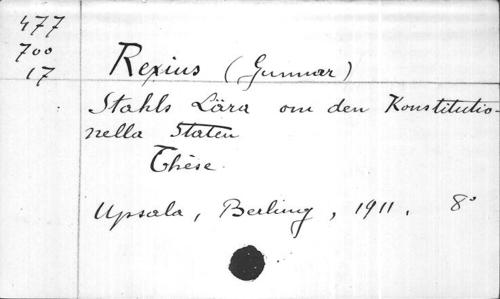 477
700
17
Rexius (Gunnar)
Stahls Lära om den Konstitutio-
nella Staten
Thèse
Upsala, Berling, 1911. 8°